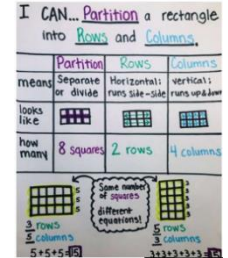 I CAN... Partition a rectangle
into Rows and Columns.
Partition Rows Columns
means Separate or divide Horizontal; runs side-side vertical; runs up&down
looks like
how many 8 squares 2 rows 4 columns
5
5
5
3 rows
5 columns
5+5+5=15
Same number
of squares
different
equations!
3
3
3
3
3
5 rows
3 columns
3+3+3+3+3=15